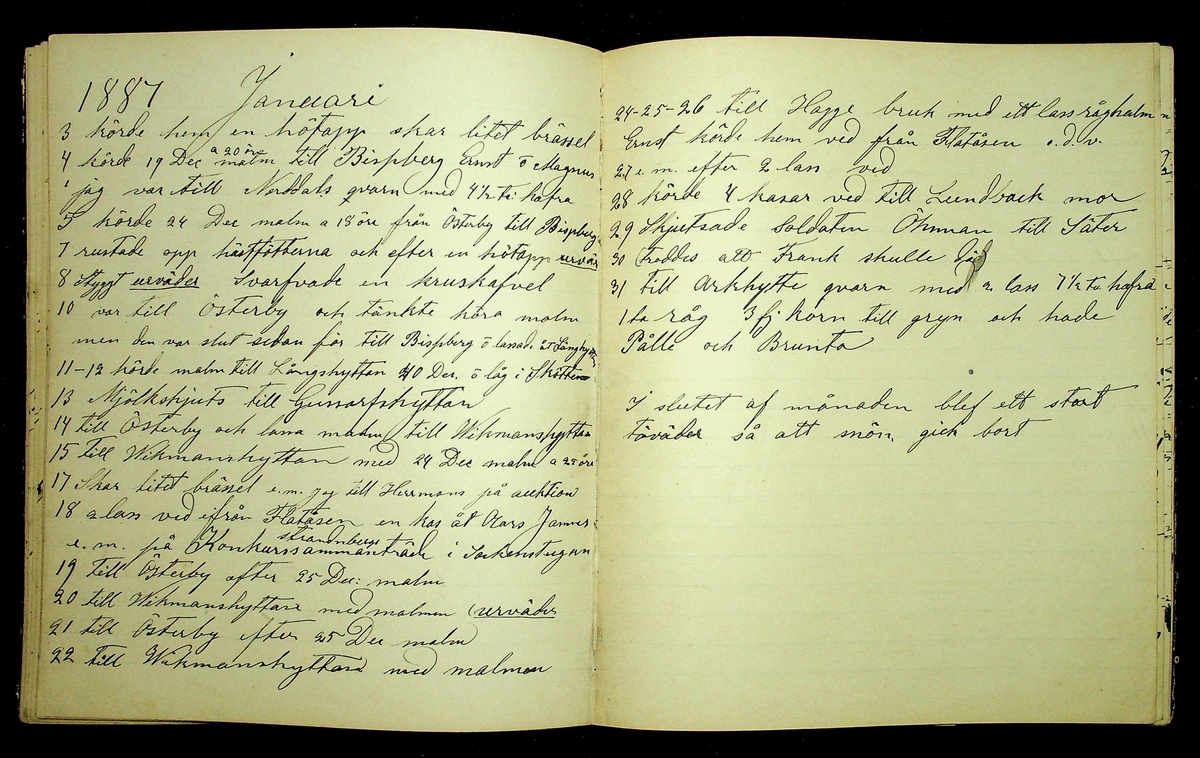 1887 Januari
3 körde hem en hötapp skar litet brässel
4 körde 19 Dec a 20 öre malm till Bispberg Ernst o Magnus
jag var till Norddals qvarn med 4 1/2 ta: hafra
5 körde 24 Dec malm a 18 öre från Österby till Bispberg
7 rustade opp hästfötterna och efter en hötapp urvär
8 Styggt urväder Svarfvade en kruskafvel
10 var till Österby och tänkte köra malm
men den var slut sedan for till Bispberg o lassade 25
11-12 körde malm till Långshyttan 40 Dec. o låg i
13 Mjölkskjuts till Gussarfshyttan
14 till Österby och lassa malm till Wikmanshyttan
15 till Wikmanshyttan med 24 Dec malm a 25 öre
17 Skar litet brässel e.m. jag till Herrmans på auktion
18 2 lass ved ifrån Flatåsen en kas åt Olars
e. m. på Strandbergs Konkurssammanträde i Sockenstugan
19 till Österby efter 25 Dec: malm
20 till Wikmanshyttan med malmen (urväder
21 till Österby efter 25 Dec malm
22 till Wikmanshyttan med malmen
24-25-26 till Hagge bruk med ett lass råghalm
Ernst körde hem ved från Flatåsen o.d.v.
27 e. m. efter 2 lass ved
28 körde 4 kasar ved till Lundback mor
29 Skjutsade Soldaten Öhman till Säter
30 troddes att Frank skulle dö
31 till Arkhytte qvarn med 2 lass 7 1/2 ta hafra
1 ta råg 3 fj. korn till gryn och hade
Pålle och Brunta
I slutet af månaden blef ett stort
töväder så att snön gick bort